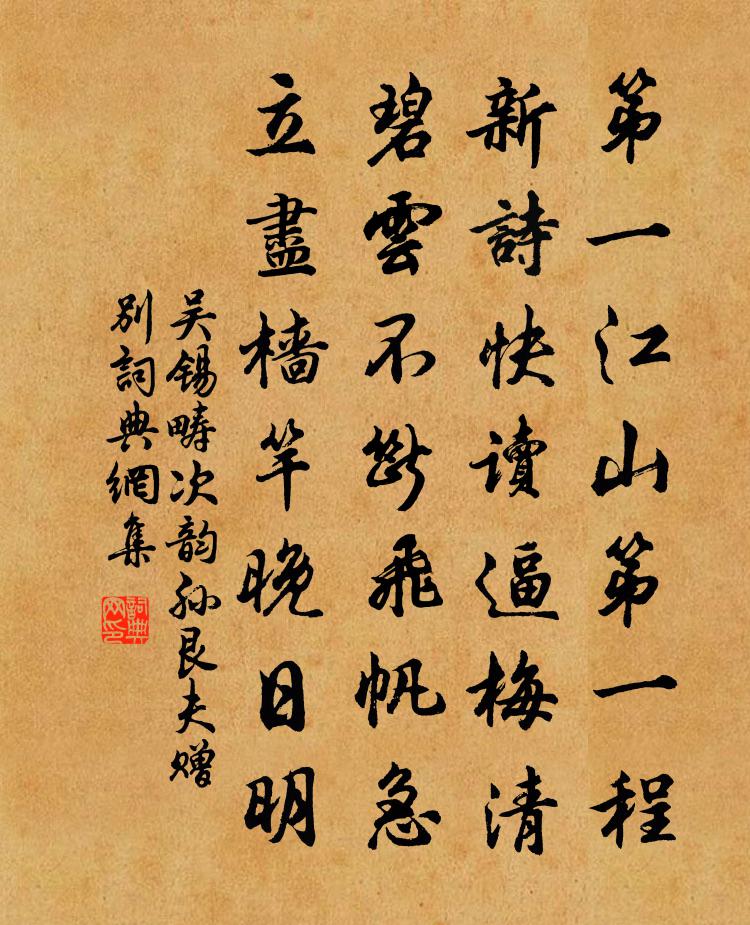 第一江山第一程
新詩快讀逼梅清
碧雲不斷飛帆急
立盡檣竿晚日明
吴錫疇次韵孫艮夫贈
别詞典網集
詞典
网印